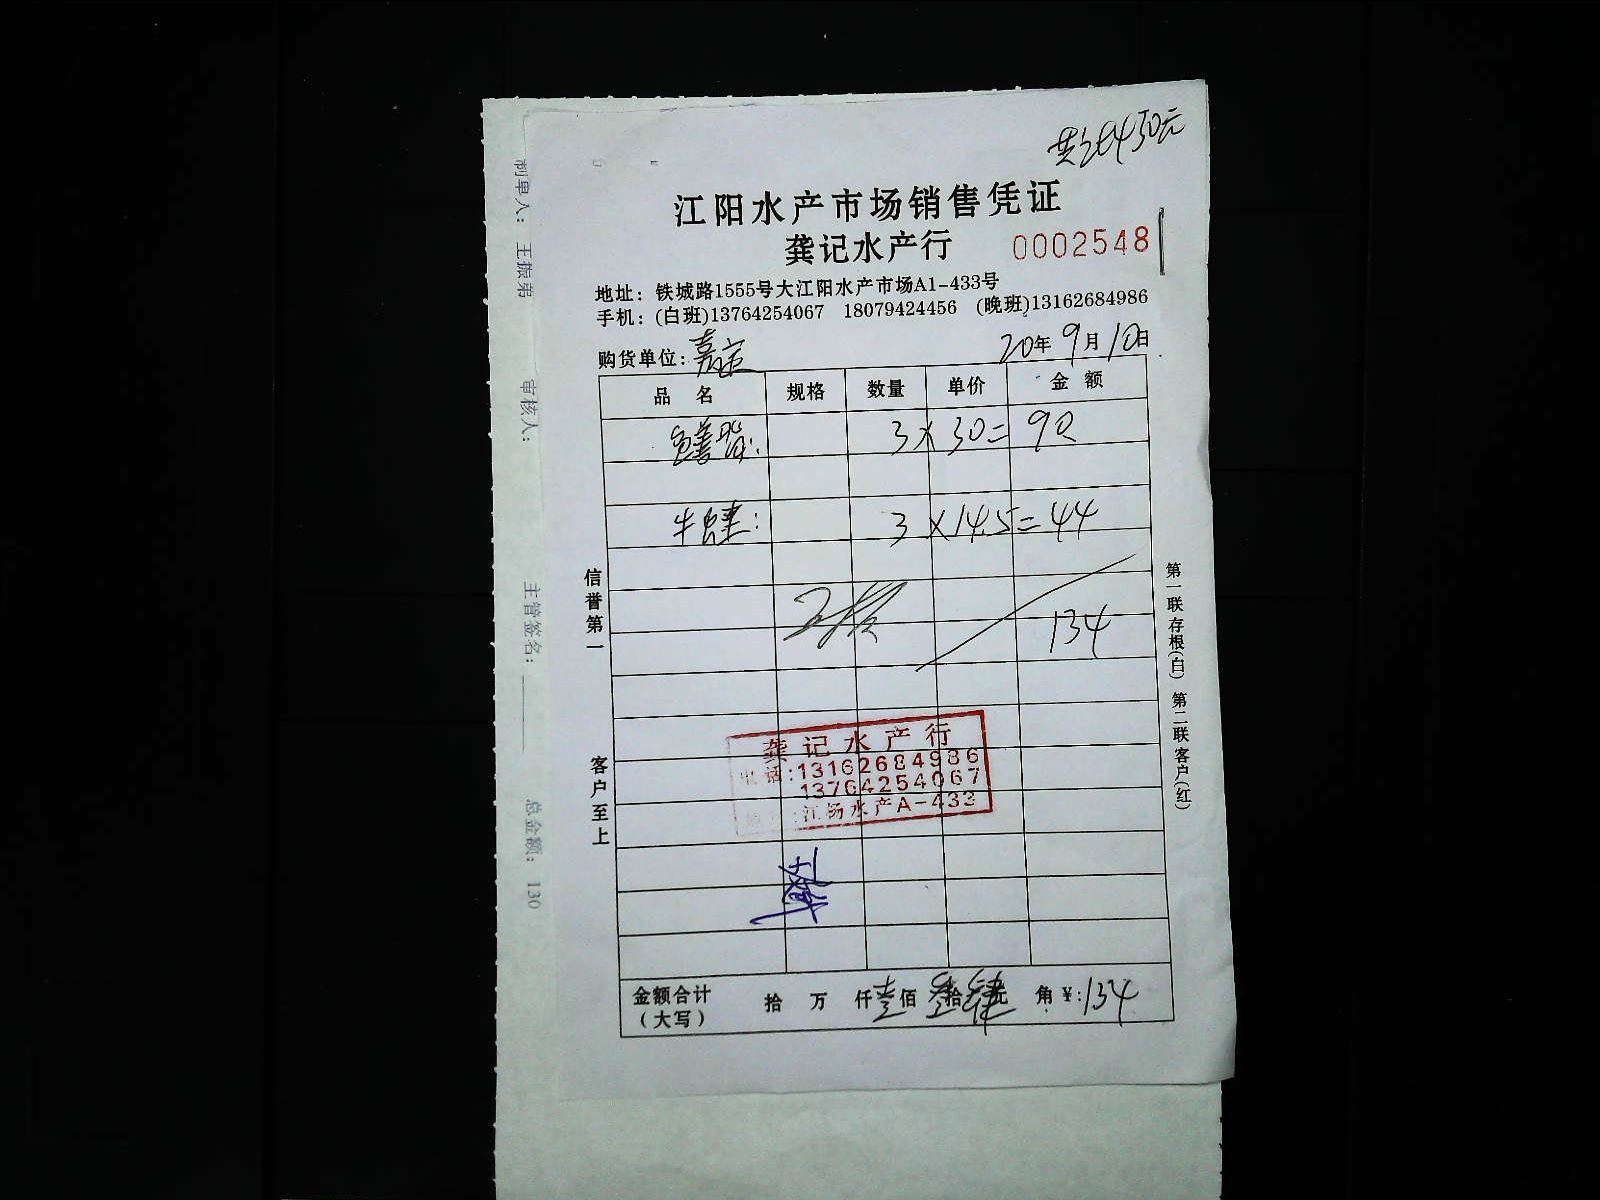 江阳水产市场销售凭证
龚记水产行 0002548
地址：铁城路1555号大江阳水产市场A1-433号
手机：(白班)13764254067 18079424456 (晚班)13162684986
购货单位：嘉定 20年9月10日
品名 规格 数量 单价 金额
3×30=90
牛 3×14.5=44
134
信誉第一
客户至上
第一联存根(白) 第二联客户(红)
龚记水产行
电话:13162684986
13764254067
江杨水产A-433
金额合计(大写) 拾 万 仟壹佰叁拾肆元 角 ¥:134
制单人：王振弟 审核人： 主管签名： 总金额：130